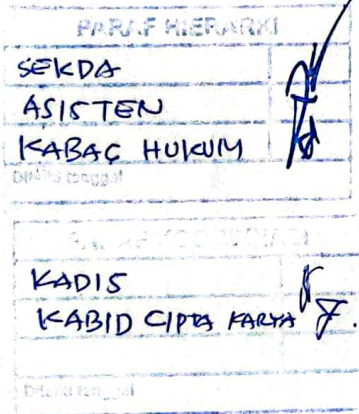 PARAF HIERARKI
SEKDA
ASISTEN
KABAG HUKUM
KADIS
KABID CIPTA KARYA